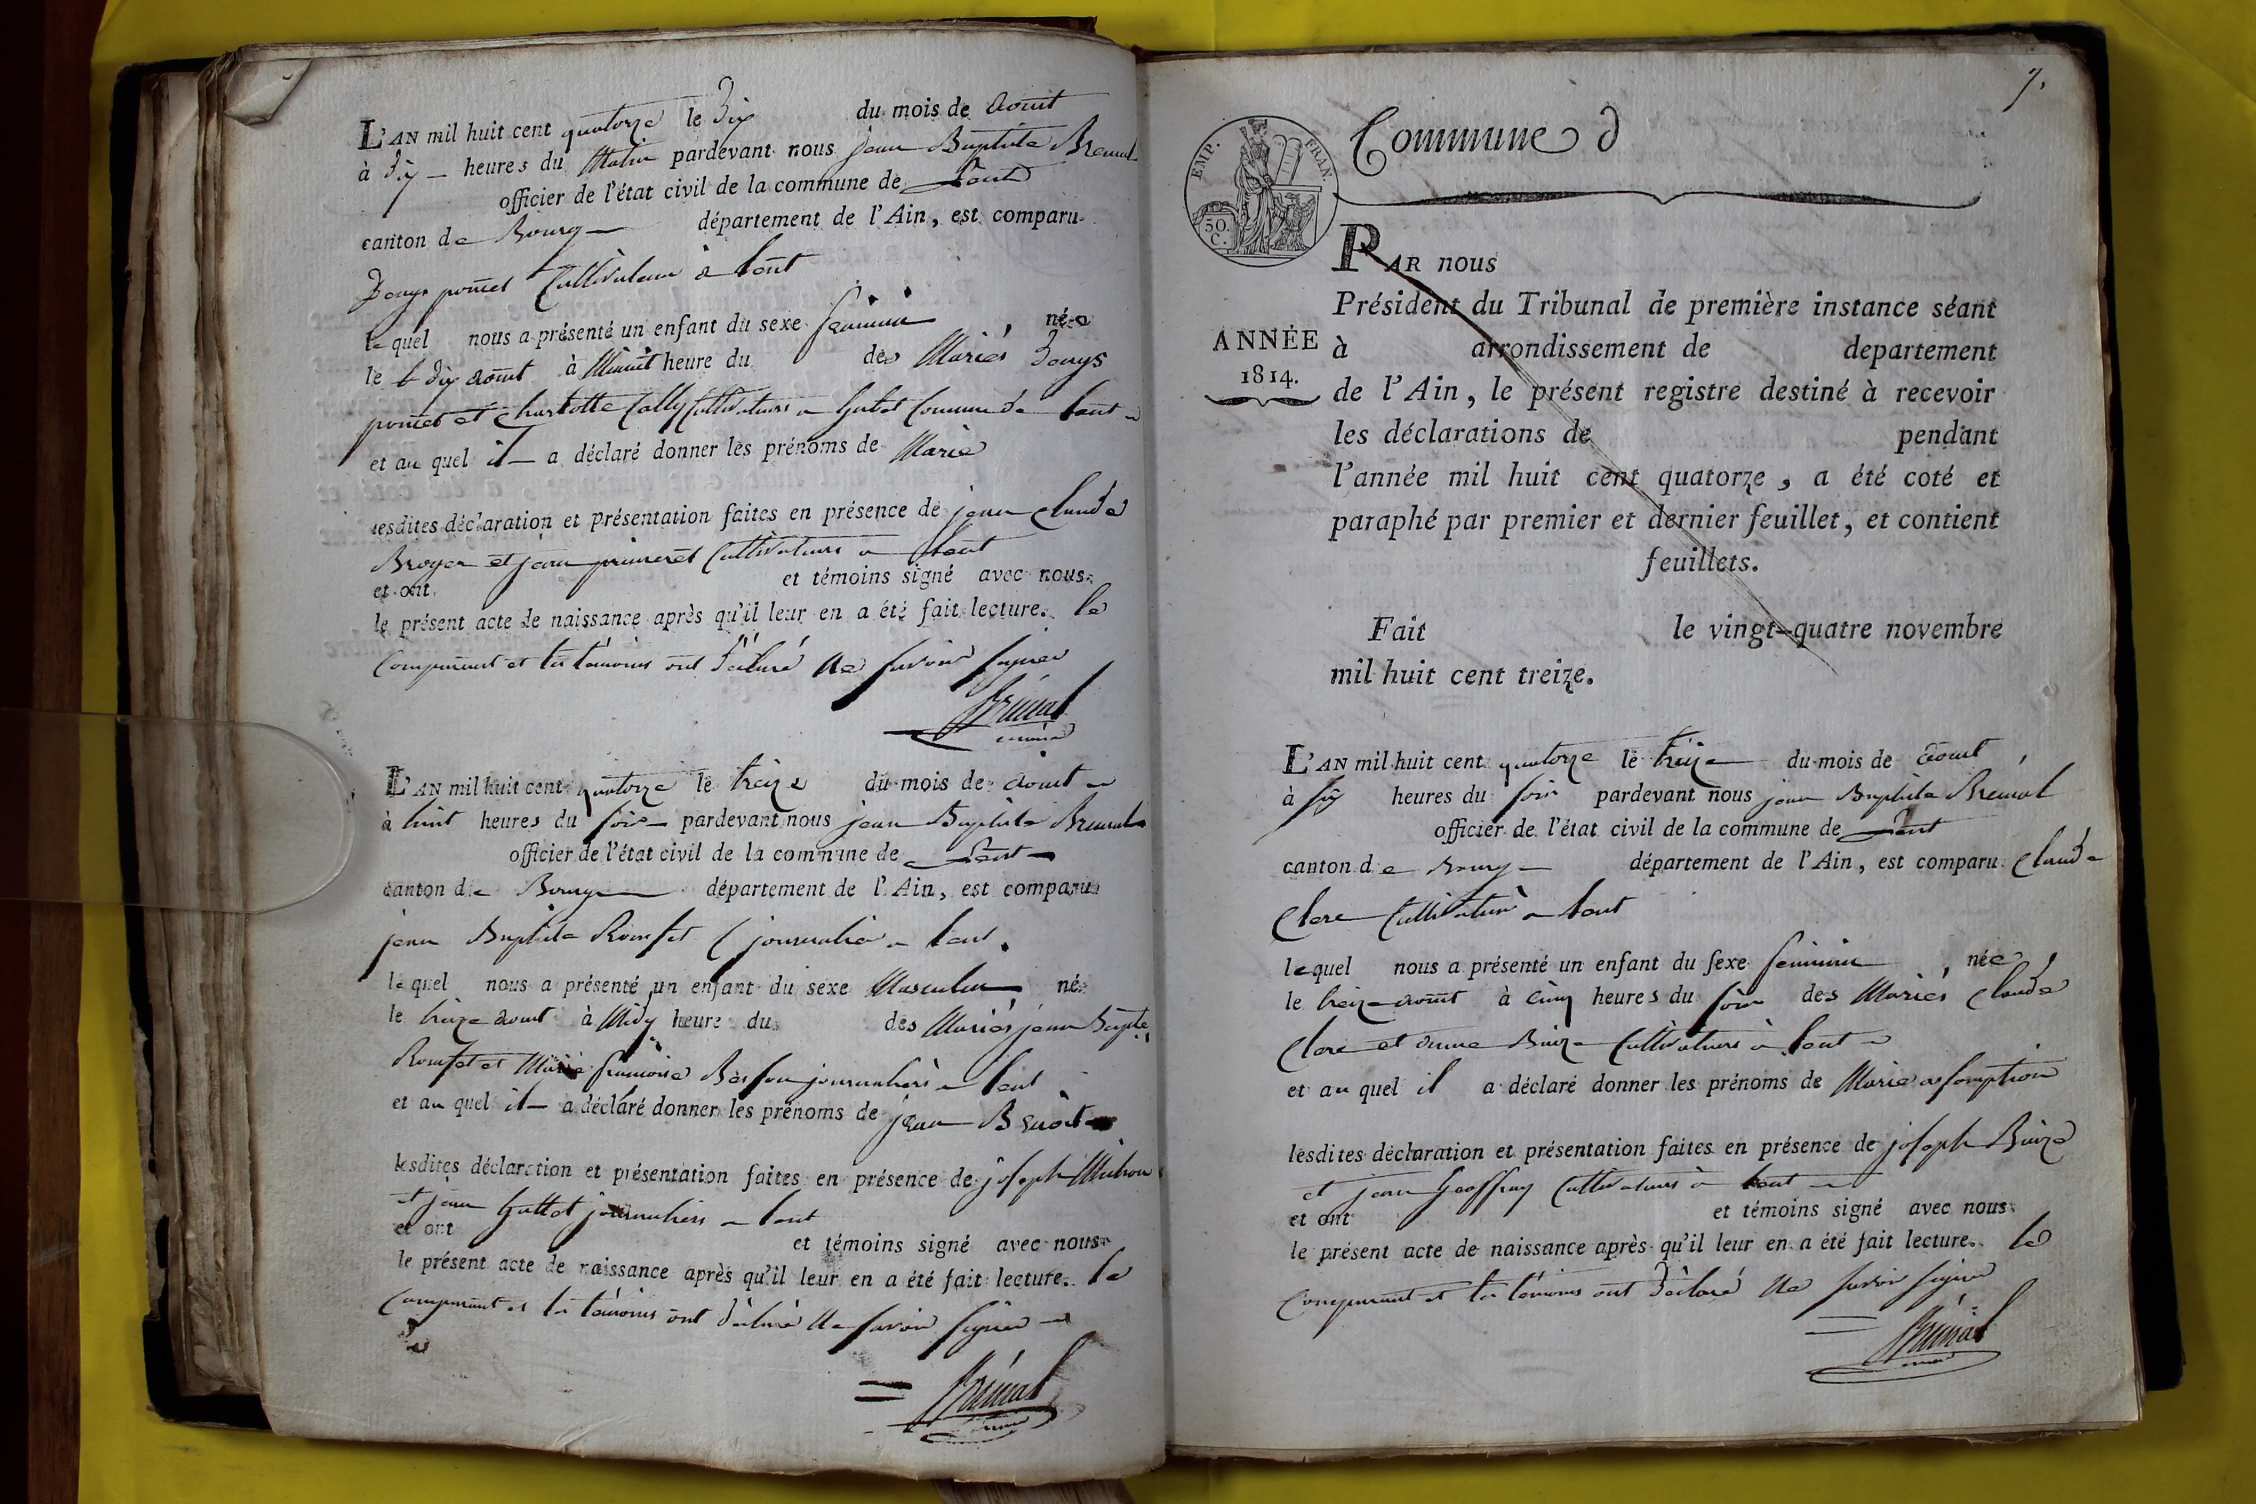 L'AN mil huit cent quatorze le Dix du mois de Aoust
à Dix heures du Matin pardevant nous jean Baptiste
officier de l'état civil de la commune de
canton de Bourg département de l'Ain, est comparu
Denys poncet Cultivateur à
lequel nous a présenté un enfant du sexe féminin, née
le Dix aoust à Minuit heure du des Mariés Denys
poncet et Charlotte Cultivateurs à Commune de
et au quel il a déclaré donner les prénoms de Marie
lesdites déclaration et présentation faites en présence de jean Claude
Broyer et jean Cultivateurs à
et ont et témoins signé avec nous
le présent acte de naissance après qu'il leur en a été fait lecture. le
Comparant et les témoins ont Déclaré Ne savoir signer
L'AN mil huit cent quatorze le treize du mois de aoust
à huit heures du soir pardevant nous jean Baptiste
officier de l'état civil de la commune de
canton de Bourg département de l'Ain, est comparu
jean Baptiste journalier à
lequel nous a présenté un enfant du sexe Masculin né
le treize aoust à Midy heure du des Mariés jean Bapte
et Marie françoise journaliers à
et au quel il a déclaré donner les prénoms de jean Benoit
lesdites déclaration et présentation faites en présence de joseph Michon
et jean journaliers à
et ont et témoins signé avec nous
le présent acte de naissance après qu'il leur en a été fait lecture. le
Comparant et les témoins ont Déclaré Ne savoir signer
7.
Commune d
EMP. FRAN.
50. C.
PAR nous
Président du Tribunal de première instance séant
ANNÉE
1814.
à arrondissement de departement
de l'Ain, le présent registre destiné à recevoir
les déclarations de pendant
l'année mil huit cent quatorze, a été coté et
paraphé par premier et dernier feuillet, et contient
feuillets.
Fait le vingt-quatre novembre
mil huit cent treize.
L'AN mil huit cent quatorze le treize du mois de aoust
à six heures du soir pardevant nous jean Baptiste
officier de l'état civil de la commune de
canton de Bourg département de l'Ain, est comparu Claude
Clere Cultivateur à
lequel nous a présenté un enfant du sexe féminin née
le treize aoust à cinq heures du soir des Mariés Claude
Clere et Cultivateurs à
et au quel il a déclaré donner les prénoms de Marie assomption
lesdites déclaration et présentation faites en présence de joseph
et jean Geoffray Cultivateurs à
et ont et témoins signé avec nous
le présent acte de naissance après qu'il leur en a été fait lecture. le
Comparant et les témoins ont Déclaré Ne savoir signer